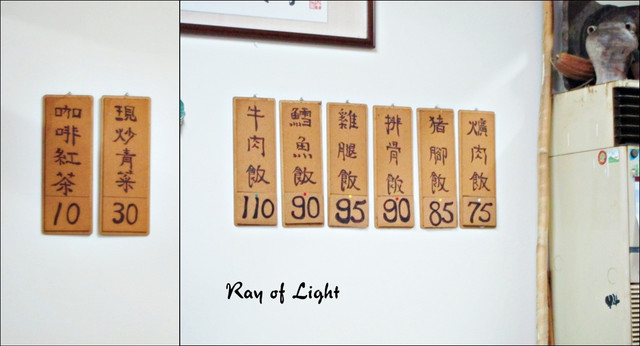 咖啡紅茶
10
現炒青菜
30
牛肉飯
110
鱈魚飯
90
雞腿飯
95
排骨飯
90
豬腳飯
85
爌肉飯
75
Ray of Light